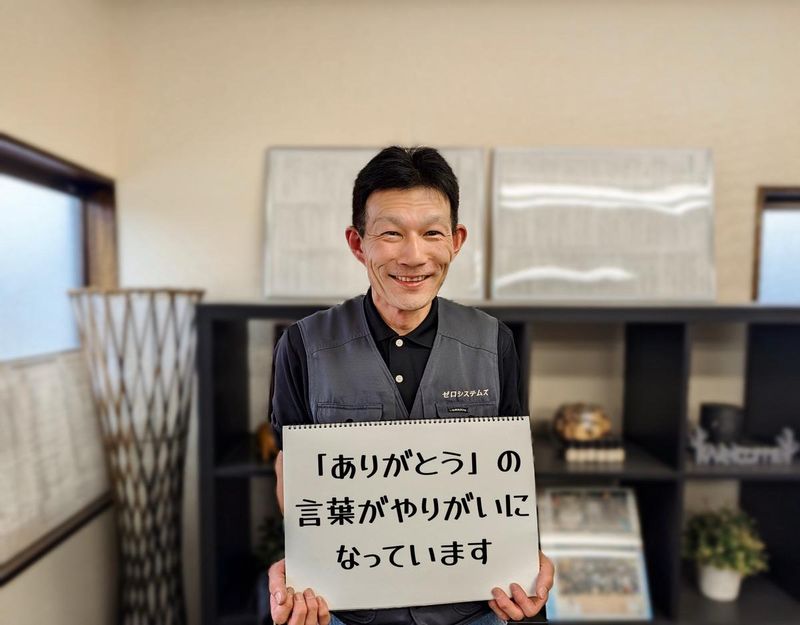 ゼロシステムズ
「ありがとう」の
言葉がやりがいに
なっています